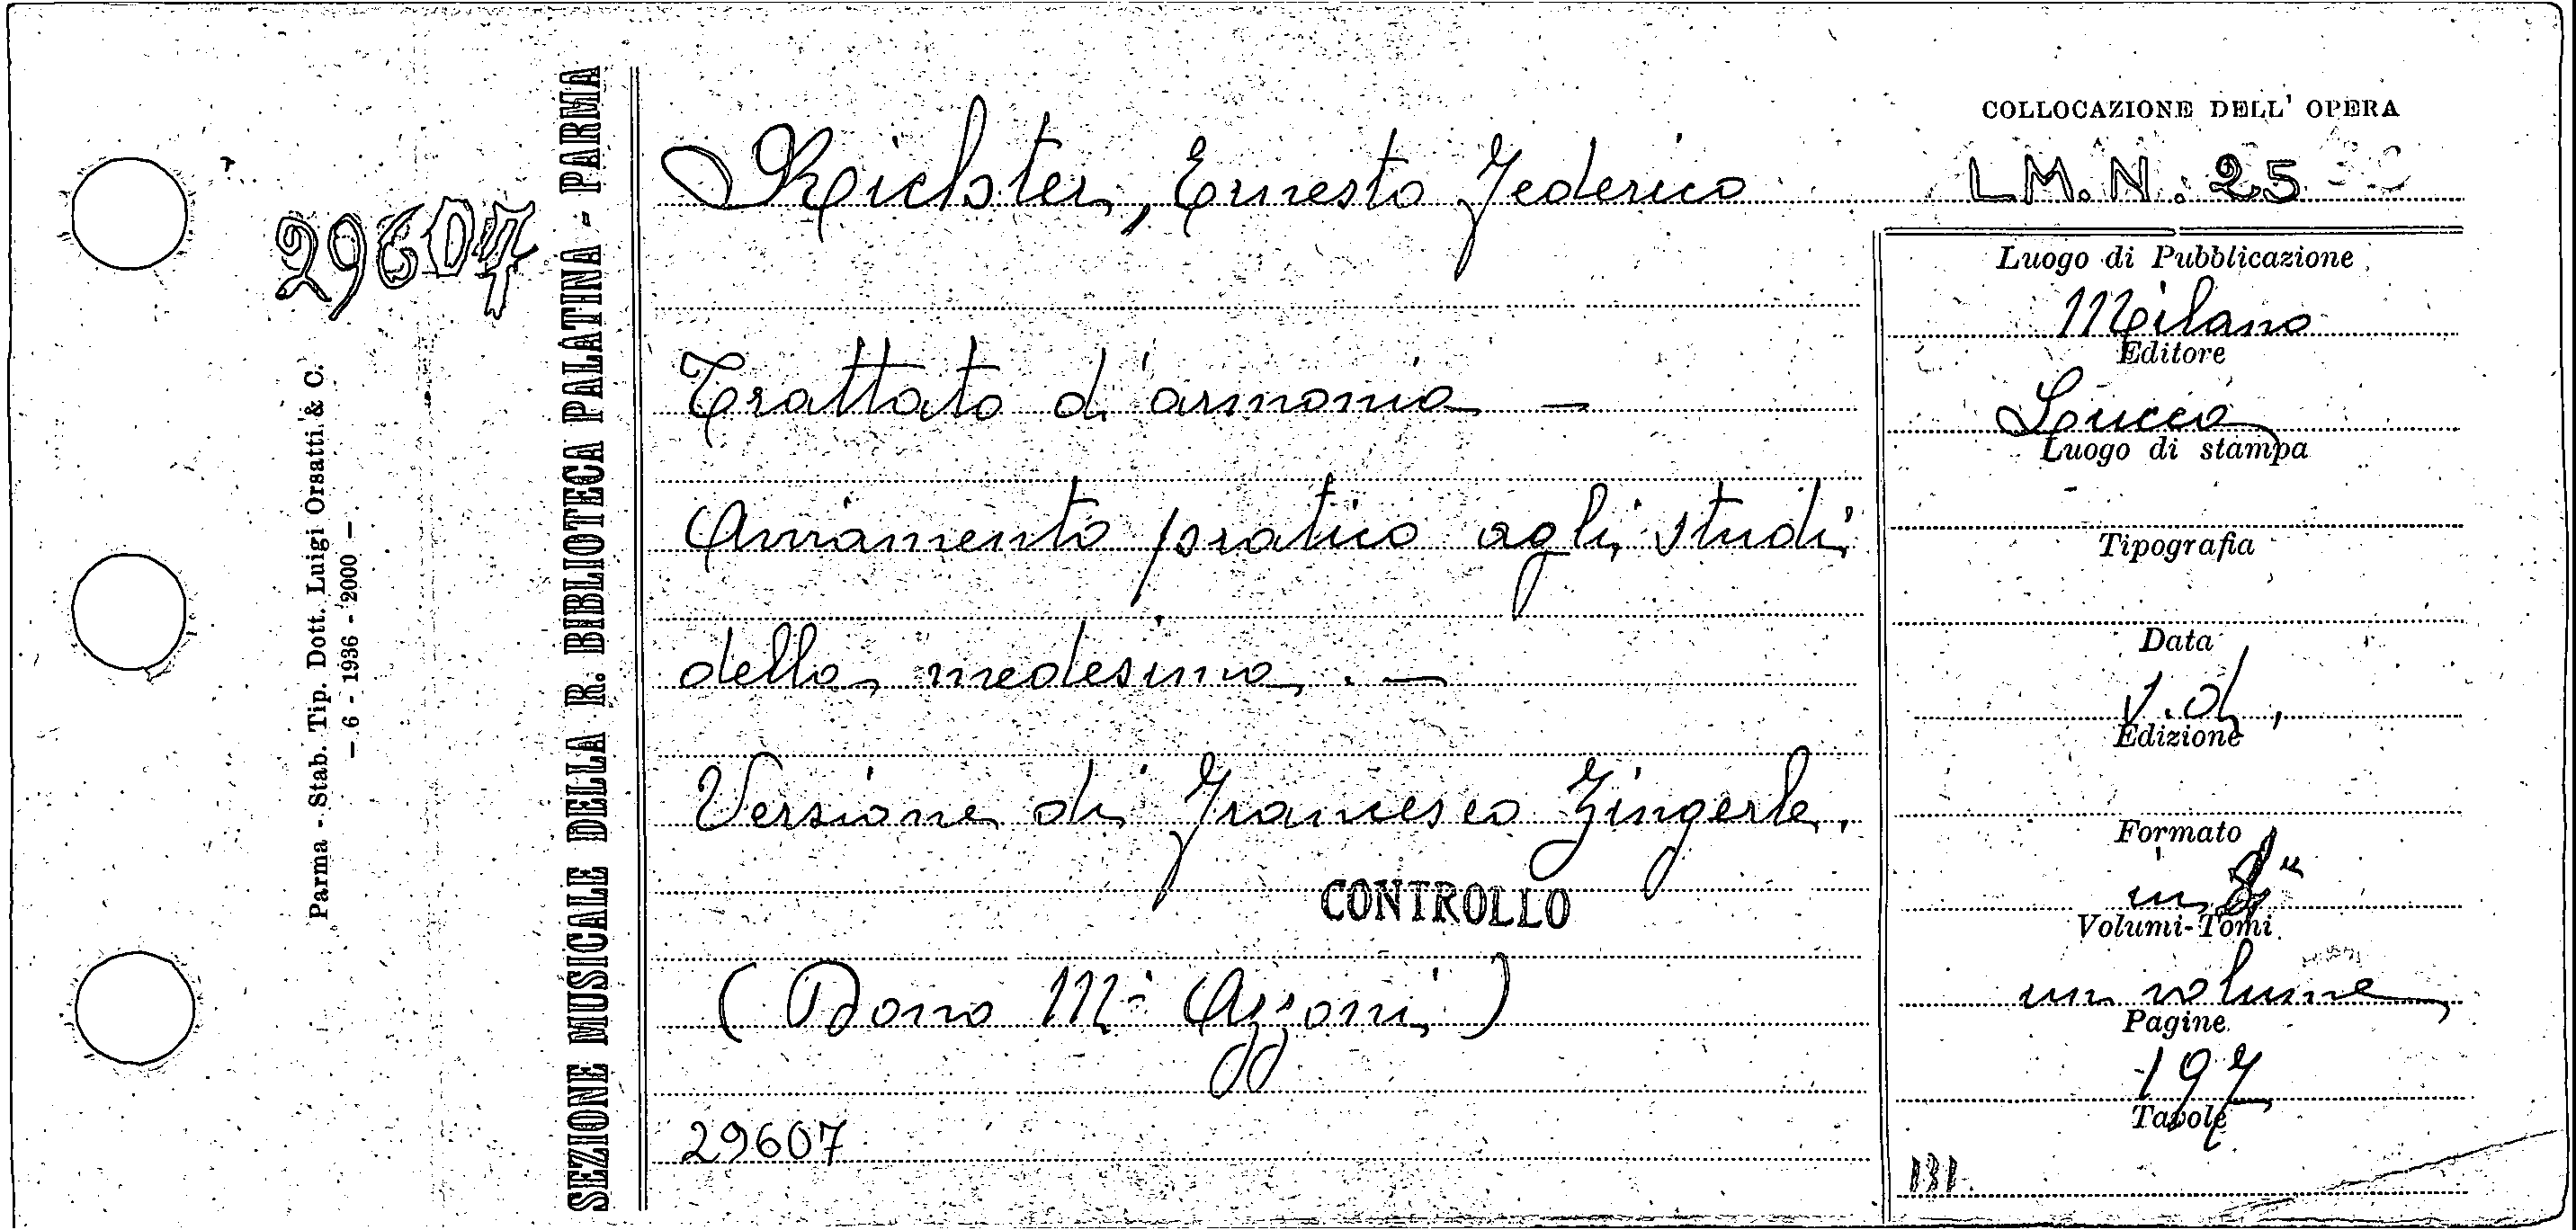 29607
Parma - Stab. Tip. Dott. Luigi Orsatti & C.
— 6 - 1936 - 2000 —
SEZIONE MUSICALE DELLA R. BIBLIOTECA PALATINA - PARMA
Richter, Ernesto Federico
Trattato d'armonia —
Avviamento pratico agli studi
della medesima. —
Versione di Francesco Zingerle.
CONTROLLO
(Dono M° Azzoni)
29607
COLLOCAZIONE DELL' OPERA
L.M.N. 25
Luogo di Pubblicazione
Milano
Editore
Lucca
Luogo di stampa
Tipografia
Data
s.d.
Edizione
Formato
in 8°
Volumi-Tomi
un volume
Pagine
197
Tavole
131